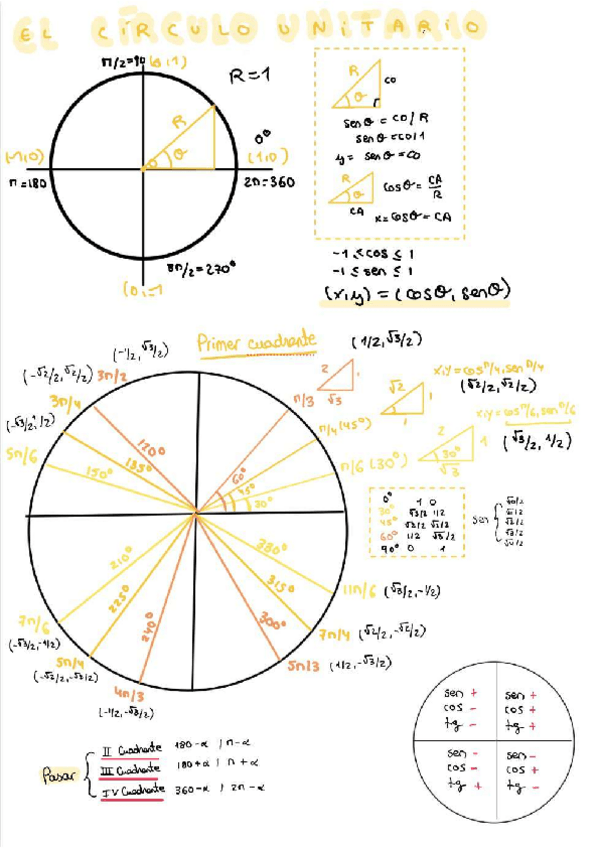 EL CÍRCULO UNITARIO
π/2=90 (0,1)
R=1
R
θ
0°
(-1,0)
(1,0)
π=180
2π=360
3π/2=270°
(0,-1
R
CO
θ
senθ = CO/R
senθ = CO/1
y = senθ = CO
R
θ
CA
cosθ = CA/R
x = cosθ = CA
-1 ≤ cos ≤ 1
-1 ≤ sen ≤ 1
(x,y) = (cosθ, senθ)
Primer cuadrante
(1/2, √3/2)
(-1/2, √3/2)
(-√2/2, √2/2) 3π/2
3π/4
(-√3/2, 1/2)
5π/6
π/3
2
1
√3
√2
1
1
x,y = cos π/4, sen π/4
(√2/2, √2/2)
π/4 (45°)
x,y = cos π/6, sen π/6
2
1
30°
√3
(√3/2, 1/2)
π/6 (30°)
120°
135°
150°
60°
45°
30°
0° 1 0
30° √3/2 1/2
45° √2/2 √2/2
60° 1/2 √3/2
90° 0 1
sen
√0/2
√1/2
√2/2
√3/2
√4/2
210°
225°
240°
380°
315°
300°
11π/6 (√3/2, -1/2)
7π/6
(-√3/2, -1/2)
7π/4 (√2/2, -√2/2)
5π/4
(-√2/2, -√2/2)
5π/3 (1/2, -√3/2)
4π/3
(-1/2, -√3/2)
sen +
cos -
tg -
sen +
cos +
tg +
sen -
cos -
tg +
sen -
cos +
tg -
Pasar
II Cuadrante 180-α / π-α
III Cuadrante 180+α / π+α
IV Cuadrante 360-α / 2π-α